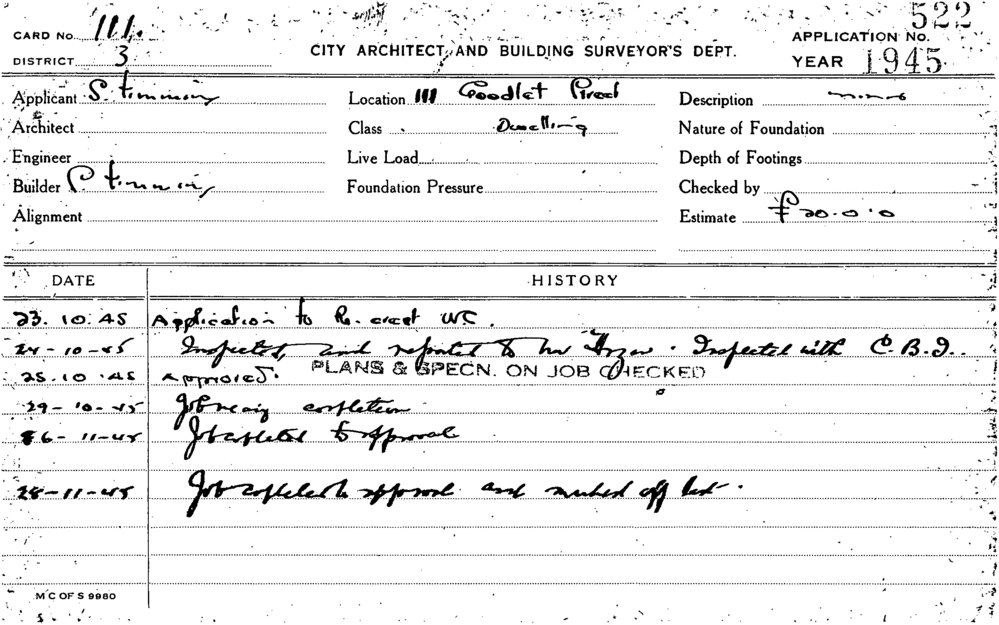 522
CARD No. 111.
APPLICATION No.
DISTRICT 3
CITY ARCHITECT AND BUILDING SURVEYOR'S DEPT.
YEAR 1945
Applicant S. Timmins
Location 111 Goodlet Street
Description
Architect
Class Dwelling
Nature of Foundation
Engineer
Live Load
Depth of Footings
Builder S. Timmins
Foundation Pressure
Checked by
Alignment
Estimate £20.0.0
DATE HISTORY
23.10.45 Application to Re-erect WC.
24-10-45 Inspected, and reported to Mr . Inspected with C.B.I..
25.10.45 Approved. PLANS & SPECN. ON JOB CHECKED
29-10-45 Job nearing completion
-11-45 Job completed to approval
28-11-45 Job completed to approval and marked off list.
M C OF S 9980